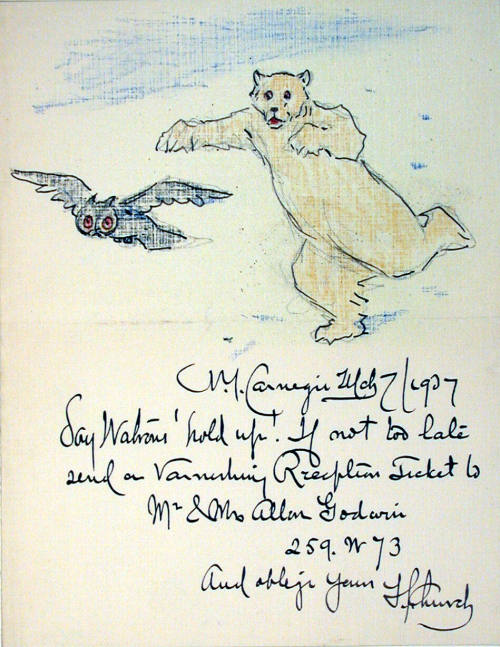 N.Y. Carnegie Mch 7/1907
Say Watrous 'hold up'. If not too late
send a Varnishing Reception Ticket to
Mr & Mrs Allan Godwin
259. W 73
And oblige yours FS Church